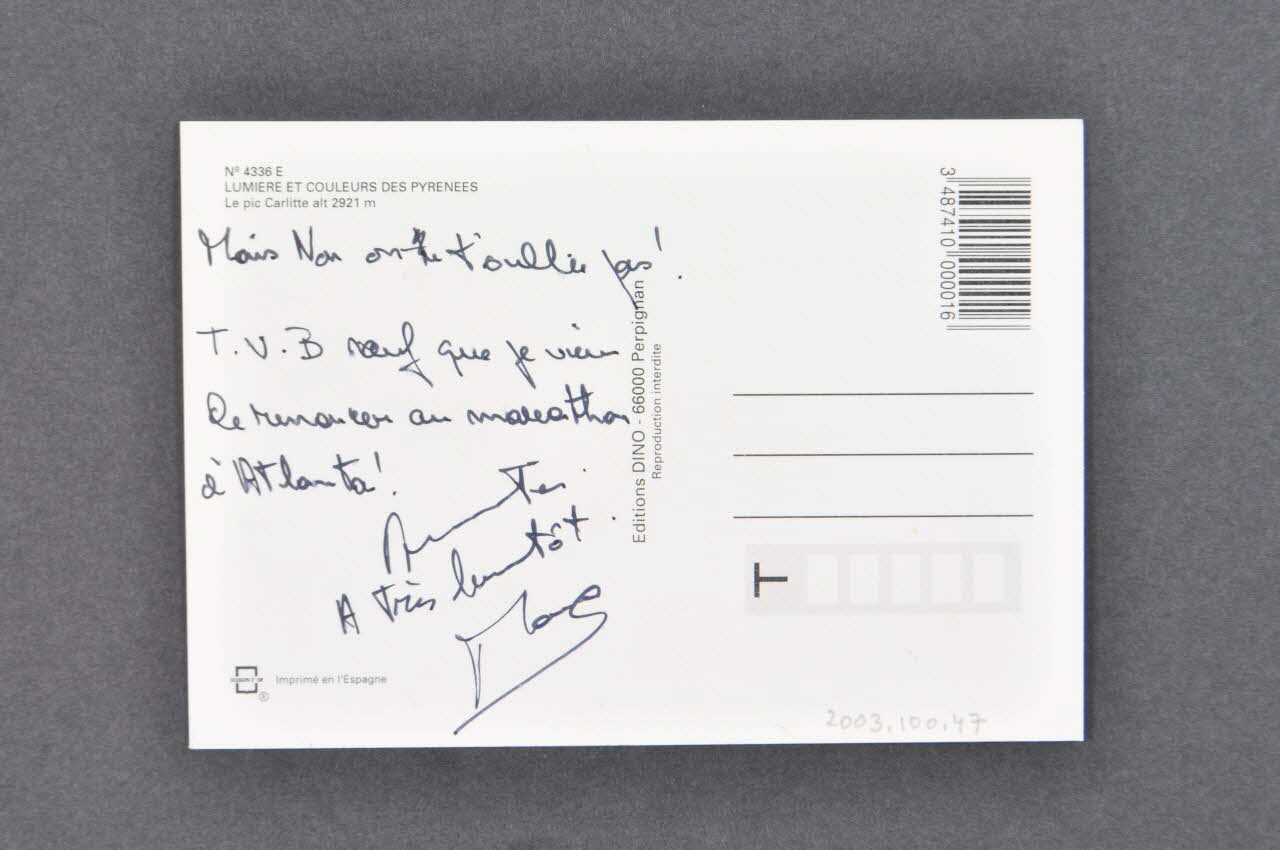 Nº 4336 E
LUMIERE ET COULEURS DES PYRENEES
Le pic Carlitte alt 2921 m
Mais Non on ne t'oublie pas !
T.V.B sauf que je viens
de renoncer au marathon
à Atlanta !
Amitiés
A très bientôt.
Editions DINO - 66000 Perpignan
Reproduction interdite
3 487410 000016
T
Imprimé en l'Espagne
®
2003.100.47